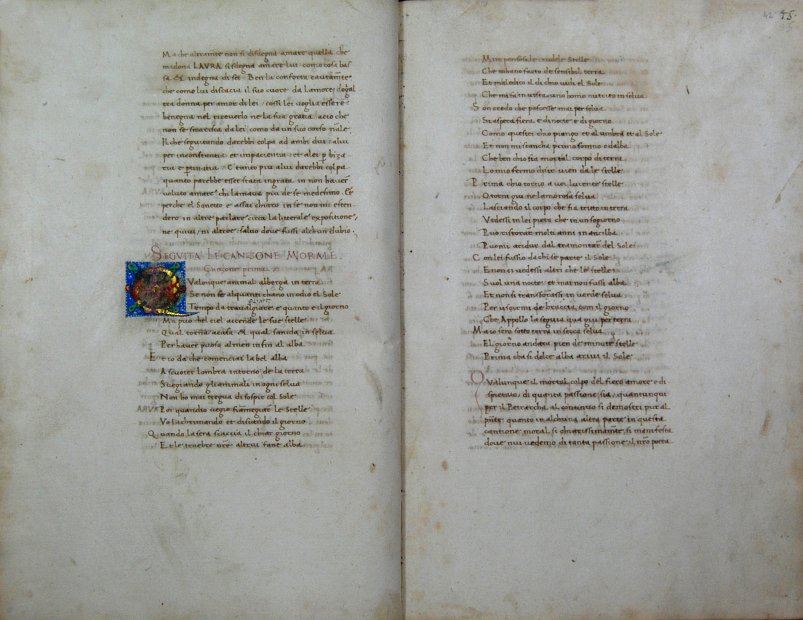 Ma che altrante non si disdegna amare quella che
madona LAURA si sdegna amare lui como cosa bas
sa et indegna di se: Ben la conforta cautamẽte
che como lui discacia il suo cuore da lamore dogal
tra donna per amor di lei: cossi lei voglia essere
benegna nel riceverlo ne la sua gratia: acio che
non se smarissa da lei como da un suo corso nãle.
Il che seguitando darebbi colpa ad ambi dui: a lui
per inconstantia et impacientia: et a lei
C tanto piu a lui darebbi colpa
quanto parebbe esser stata ingrata in non haver
voluto amare chi lamava piu de se medesimo. Et
perche el Sonetto e assai chiaro in se non mi esten
dero in altro parlare circa la litterale expositione,
ne quivi ni altroe: salvo dove fussi alchun dubio.
SEGVITA LE CANZONE MORALE.
Canzone prima
Qualonque animal alberga in terra
Se non se alquanti chano in odio el Sole
Tempo da travagliare e quanto e il giorno
Ma poio chel ciel accende le sue stelle
Qual torna a casa et qual sanida in selva
Per haver posa almeno in fin al alba
Et io da che comencia la bel alba
A scuoter lombra intorno de la terra
Svegiando gli animali in ogni selva
Non ho mai tregua di sospir col Sole
Poi quandio vegio fiamegiar le Stelle
Vo lachrimando et disiando il giorno
Quando la sera scaccia il chiar giorno
Et le tenebre nre altrui fane alba
42 45
Miro pensoso le crudele stelle
Che mhano facto de sensibil terra
Et maledico il di chio vidi el Sole
Che mi fa in vista uno homo nutrito in selva
Non credo che pascesse mai per selva
Si aspera fiera, o di nocte o di giorno
Como questei chio piango et al umbra et al Sole
Et non mi stancha primo somno od alba
Che ben chio sia mortal corpo di terra
Lo mio fermo disir vien da le stelle
Prima chio torno a voi lucente stelle
O torni giu ne lamorosa selva
Lasciando il corpo che fia trita in terra
Vedessi in lei pieta che in un sogiorno
Puo ristorar molti anni inanci lba
Puomi aridur dal tramontar del Sole
Con lei fussio da chi se parte il Sole
Et non ci vedessi altri che le stelle
Sol una nocte et mai non fussi alba
Et non si transformassi in verde selva
Per uscirmi de braccia, como il giorno
Che Appollo la seguia qua giu per terra
Ma io sero sotto terra in secca selva
El giorno andara pien de minute stelle
Prima cha si dolce alba arivi il Sole
Qualunque il mortal colpo del fiero amore e di
spietato: di quanta passione sia, quantunque
per il Petrarcha al continuo si demostri pur al
pñte quanto in alchuna altra parte in questa
cantione moral, si chiarissimamẽte si manifesta
dove nui vedemo di tanta passione il nro poeta